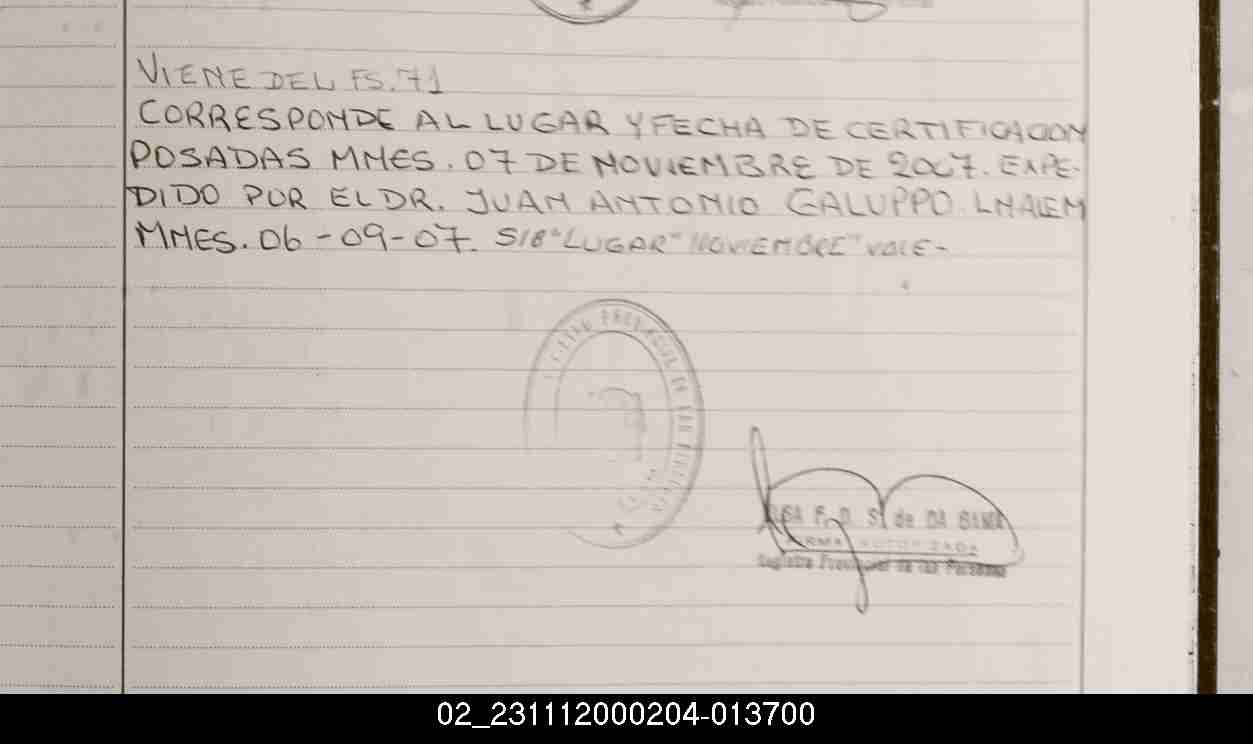 VIENE DEL FS. 71
CORRESPONDE AL LUGAR Y FECHA DE CERTIFICACION
POSADAS MNES. 07 DE NOVIEMBRE DE 2007. EXPE-
DIDO POR EL DR. JUAN ANTONIO GALUPPO. LNALEM
MNES. 06-09-07. S/B "LUGAR" "NOVIEMBRE" VALE-
F. D. S. de DA
FIRMA AUTORIZADA
Registro Provincial de las Personas
02_231112000204-013700